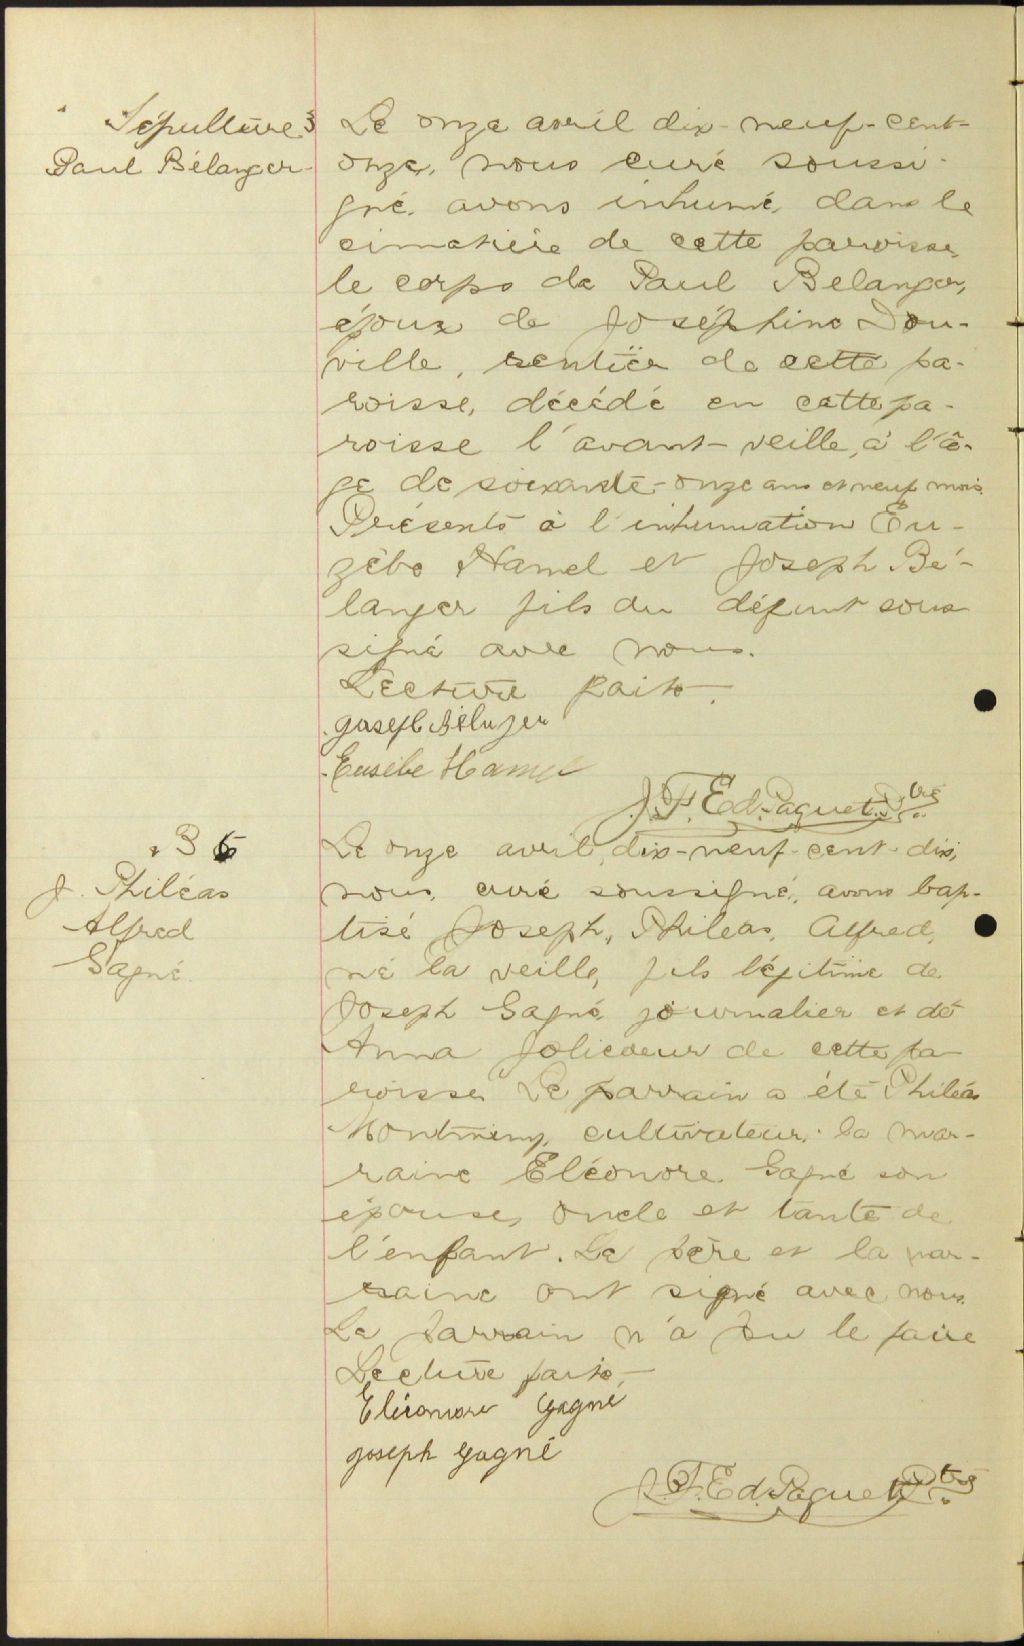 Sépulture 3
Paul Bélanger
Le onze avril dix-neuf-cent-
onze, nous curé soussi-
gné, avons inhumé, dans le
cimetière de cette paroisse,
le corps de Paul Belanger,
époux de Joséphine Dou-
ville, rentier de cette pa-
roisse, décédé en cette pa-
roisse l'avant-veille, à l'â-
ge de soixante-onze ans et neuf mois.
Présents à l'inhumation Eu-
zèbe Hamel et Joseph Bé-
langer fils du défunt sous
signé avec nous.
Lecture faite.
Joseph Bélanger
Eusèbe Hamel
J. F. Ed. Paquet Ptre
B 6
J. Philéas
Alfred
Gagné
Le onze avril, dix-neuf-cent-dix,
nous, curé soussigné, avons bap-
tisé Joseph, Philéas, Alfred,
né la veille, fils légitime de
Joseph Gagné, journalier et de
Anna Jolicoeur de cette pa-
roisse. Le parrain a été Philéas
Montminy, cultivateur, la mar-
raine Eléonore Gagné son
épouse, oncle et tante de
l'enfant. Le père et la mar-
raine ont signé avec nous.
Le parrain n'a pu le faire
Lecture faite.
Eléonore Gagné
Joseph Gagné
J. F. Ed. Paquet Ptre